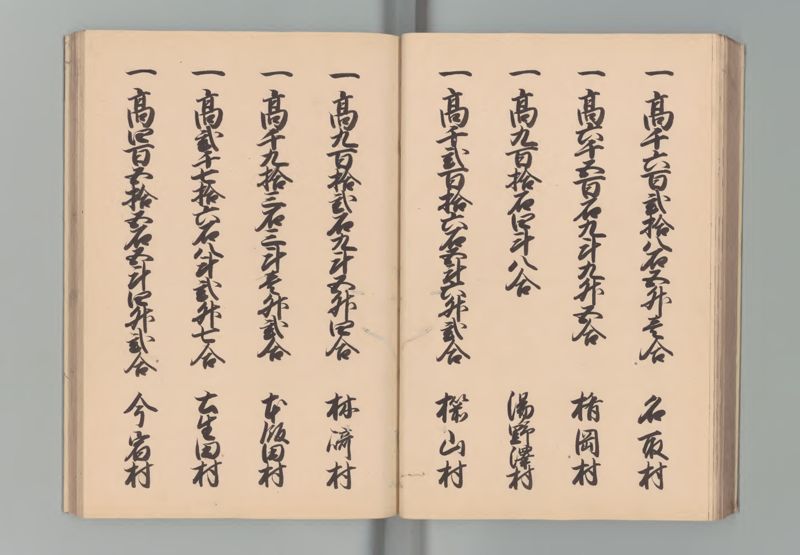 一 高千六百弐拾八石五升壱合 名取村
一 高六千五百石九斗九升五合 楯岡村
一 高九百拾石四斗八合 湯野澤村
一 高千弐百拾六石五斗六升弐合 樽山村
一 高九百拾弐石九斗五升四合 林崎村
一 高千九拾三石三斗壱升弐合 本飯田村
一 高弐千七拾六石八斗弐升七合 土生田村
一 高四百五拾五石五斗四升弐合 今宿村